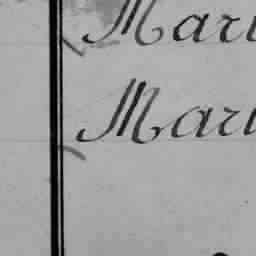 Mari
Mari